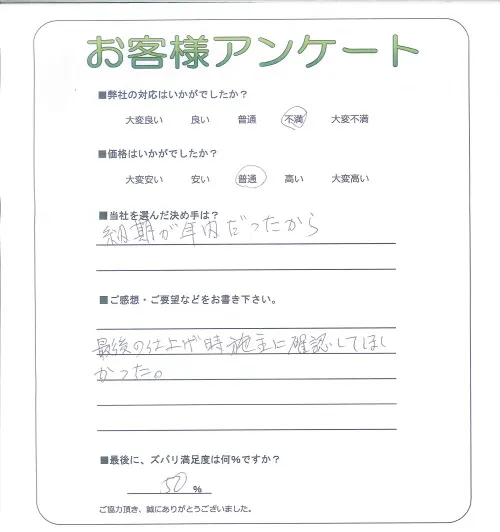 お客様アンケート
■弊社の対応はいかがでしたか？
大変良い 良い 普通 不満 大変不満
■価格はいかがでしたか？
大変安い 安い 普通 高い 大変高い
■当社を選んだ決め手は？
納期が年内だったから
■ご感想・ご要望などをお書き下さい。
最後の仕上げ時施主に確認してほし
かった。
■最後に、ズバリ満足度は何％ですか？
50 %
ご協力頂き、誠にありがとうございました。